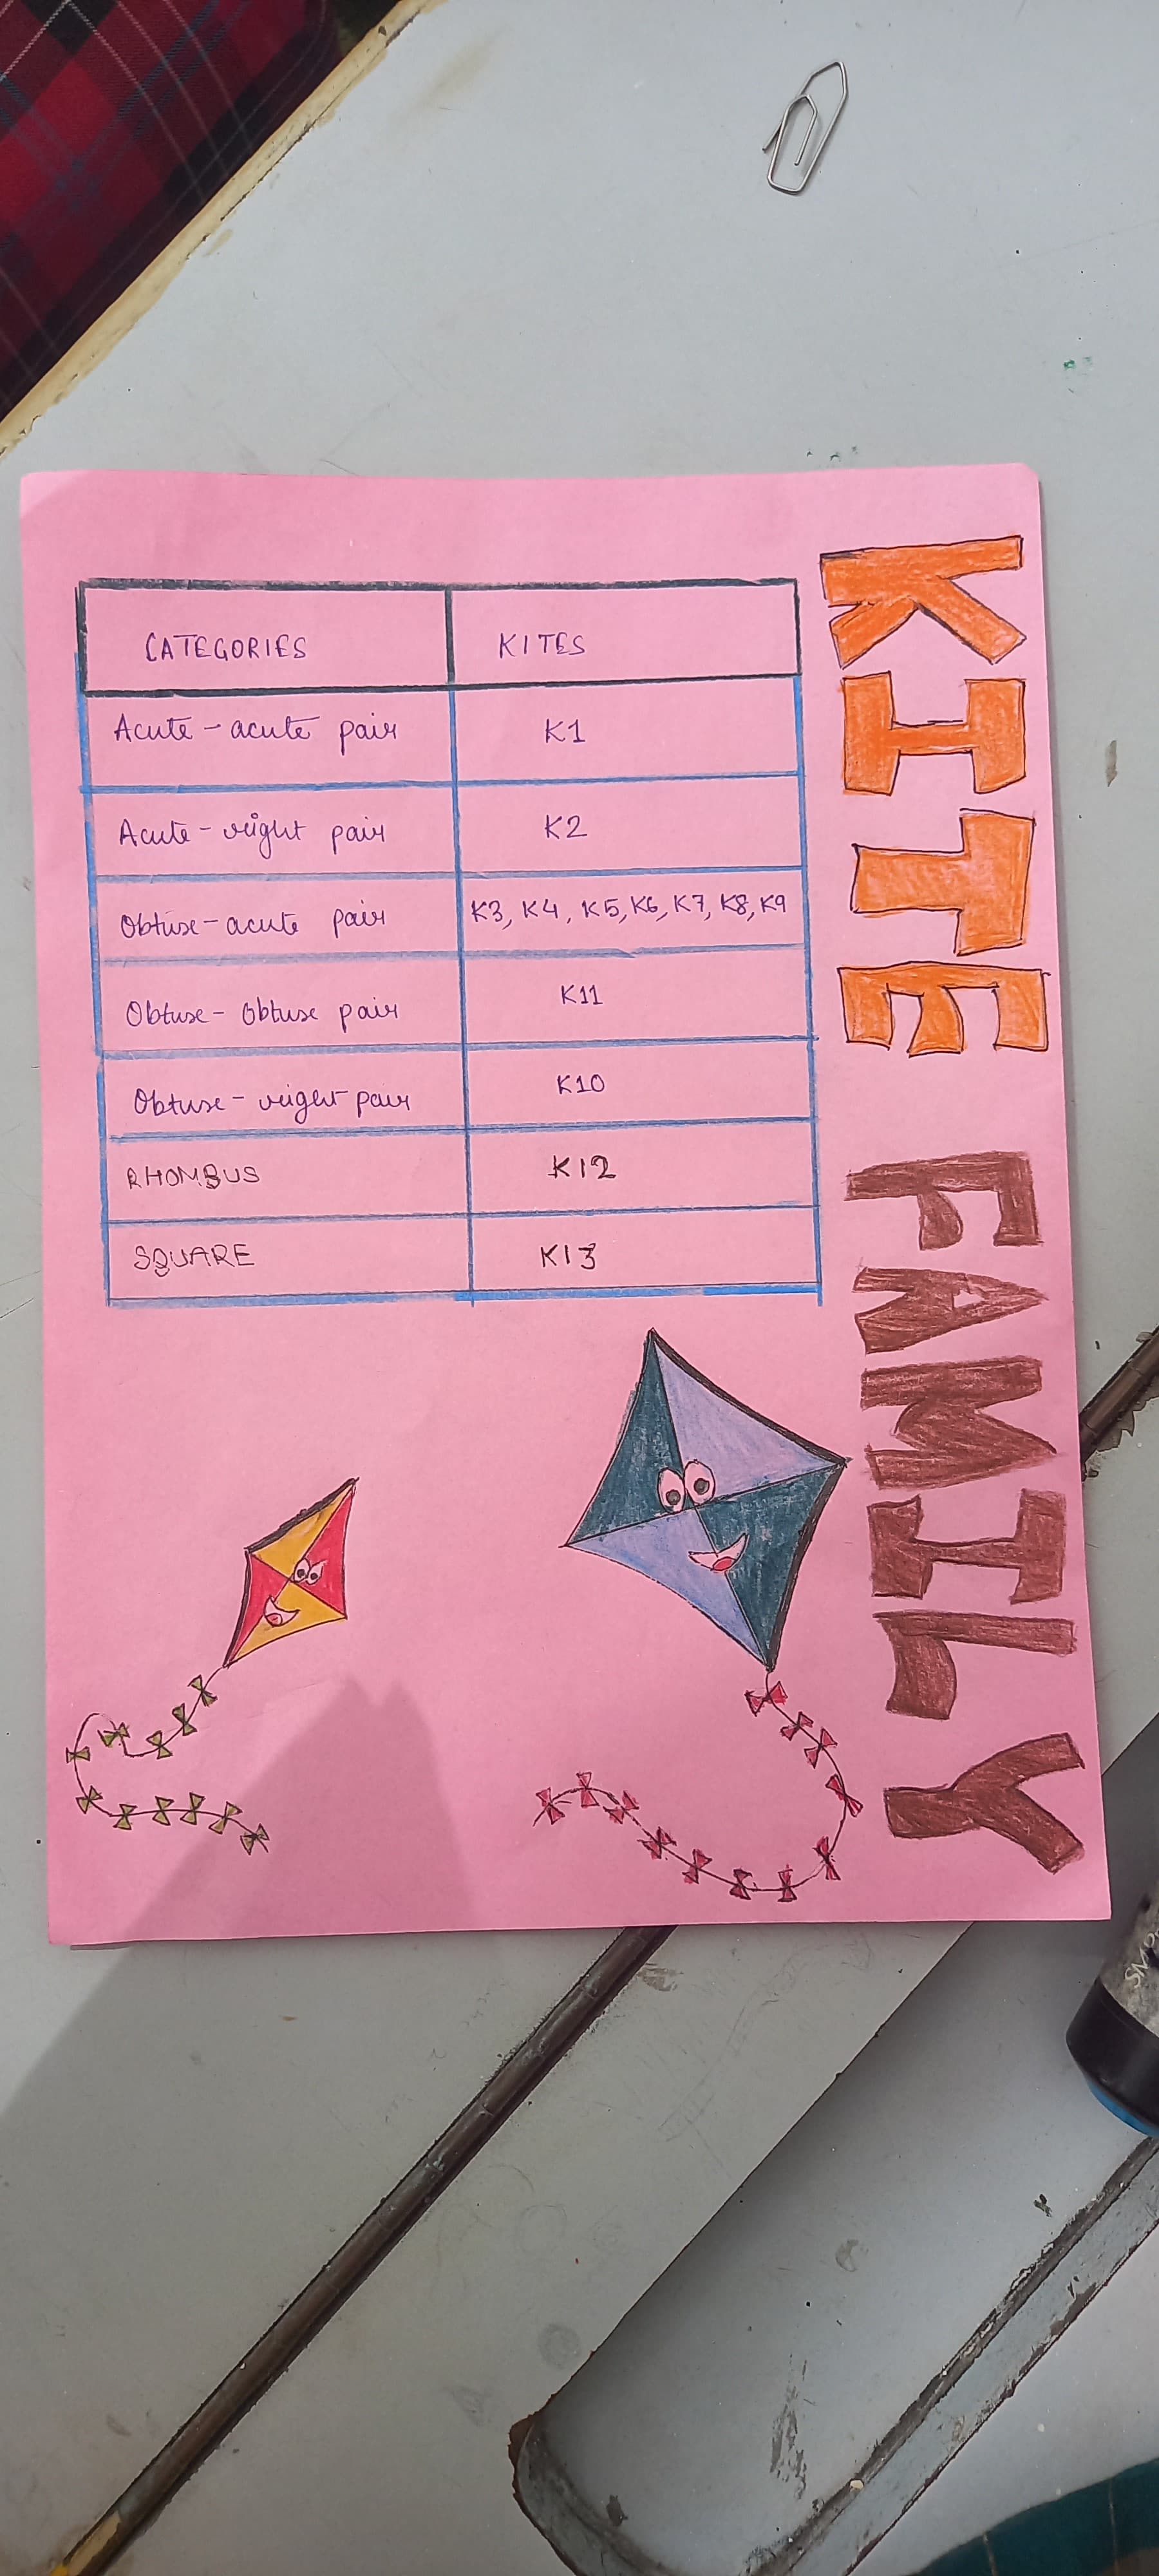 KITE FAMILY
CATEGORIES KITES
Acute - acute pair K1
Acute - right pair K2
Obtuse - acute pair K3, K4, K5, K6, K7, K8, K9
Obtuse - Obtuse pair K11
Obtuse - right pair K10
RHOMBUS K12
SQUARE K13